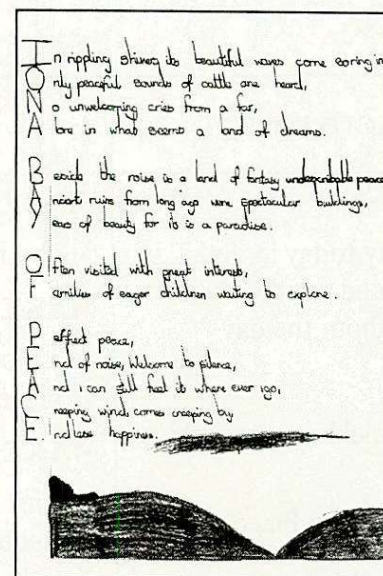 In rippling shiners its beautiful waves come soring in
Only peaceful sounds of cattle are heard,
No unwelcoming cries from a far,
Alone in what seems a land of dreams.
Beside the noise is a land of fantasy undescribable peace
Ancient ruins from long ago were spectacular buildings,
Years of beauty for it is a paradise.
Often visited with great interests,
Families of eager children waiting to explore.
Perfect peace,
End of noise, Welcome to silence,
And i can still feel it where ever i go,
Creeping wind, comes creeping by
Endless happiness.